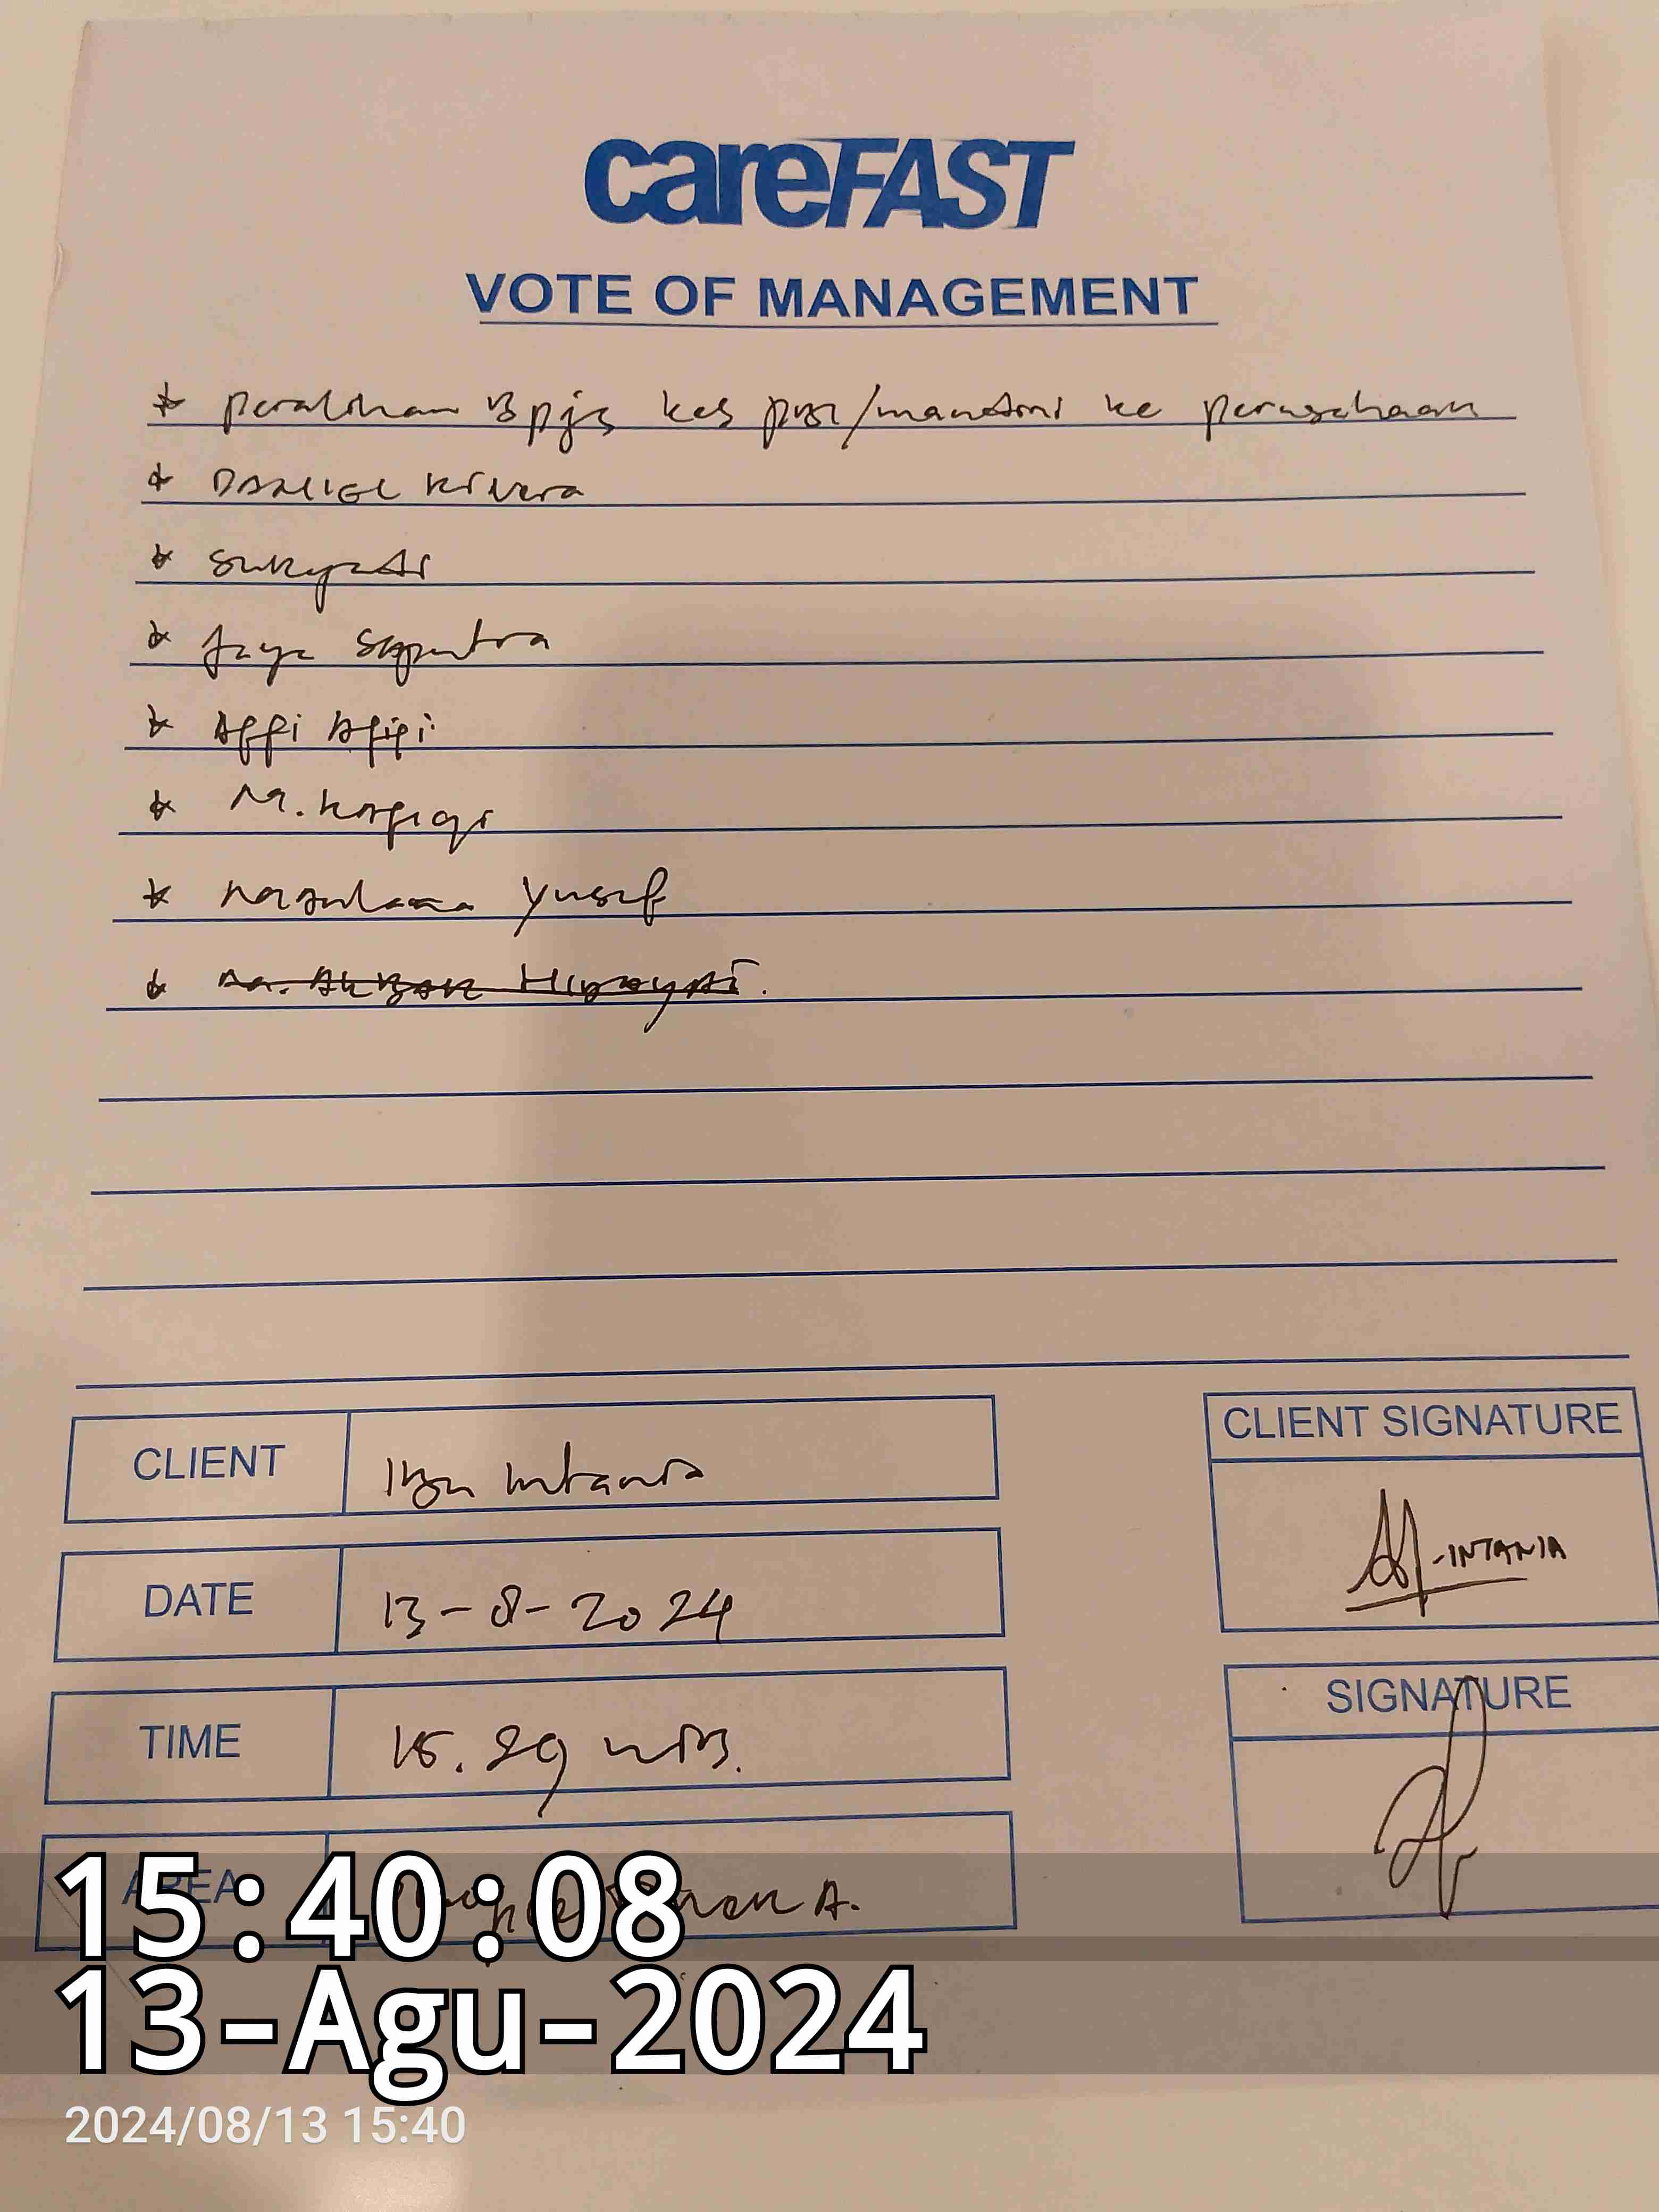 careFAST
VOTE OF MANAGEMENT
* peralihan Bpjs kes pbi/mandiri ke perusahaan
* DANIEL Rivera
* Sukyadi
* Jaya Saputra
* Affi Afipi
* M. Rofiqi
* Yusuf
* M. AKBAR HIDAYAT.
CLIENT
Ibu Intania
CLIENT SIGNATURE
-INTANIA
DATE
13-8-2024
TIME
15.29 WIB.
SIGNATURE
AREA
A.
15:40:08
13-Agu-2024
2024/08/13 15:40